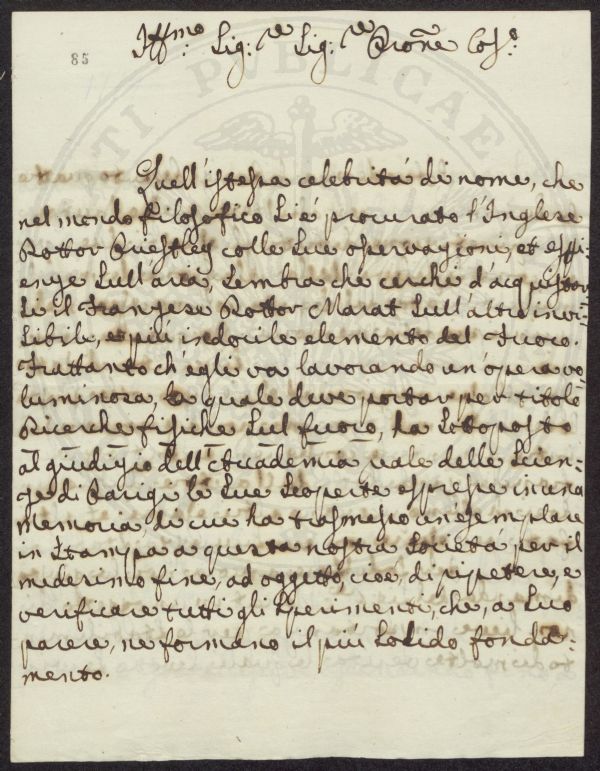 85
Ill.mo Sig.r Sig.r Prone Col.o
Quell'istessa celebrità di nome, che
nel mondo filosofico si è procurato l'Inglese
Dottor Priestley colle sue osservazioni, et esspe-
rienze sull'aria, sembra che cerchi d'acquistar-
si il Franzese Dottor Marat sull'altro invi-
sibile, e più indocile elemento del Fuoco.
Frattanto ch'egli va lavorando un'opera vo-
luminosa, la quale deve portar per titolo
Ricerche fisiche sul fuoco, ha sottoposto
al giudizio dell'Accademia reale delle Scien-
ze di Parigi le sue scoperte espresse in una
memoria, di cui ha trasmesso un'esemplare
in stampa a questa nostra Società per il
medesimo fine, ad oggetto, cioè, di ripetere, e
verificare tutti gli sperimenti, che, a suo
parere, ne formano il più solido fonda-
mento.
PUBLICAE